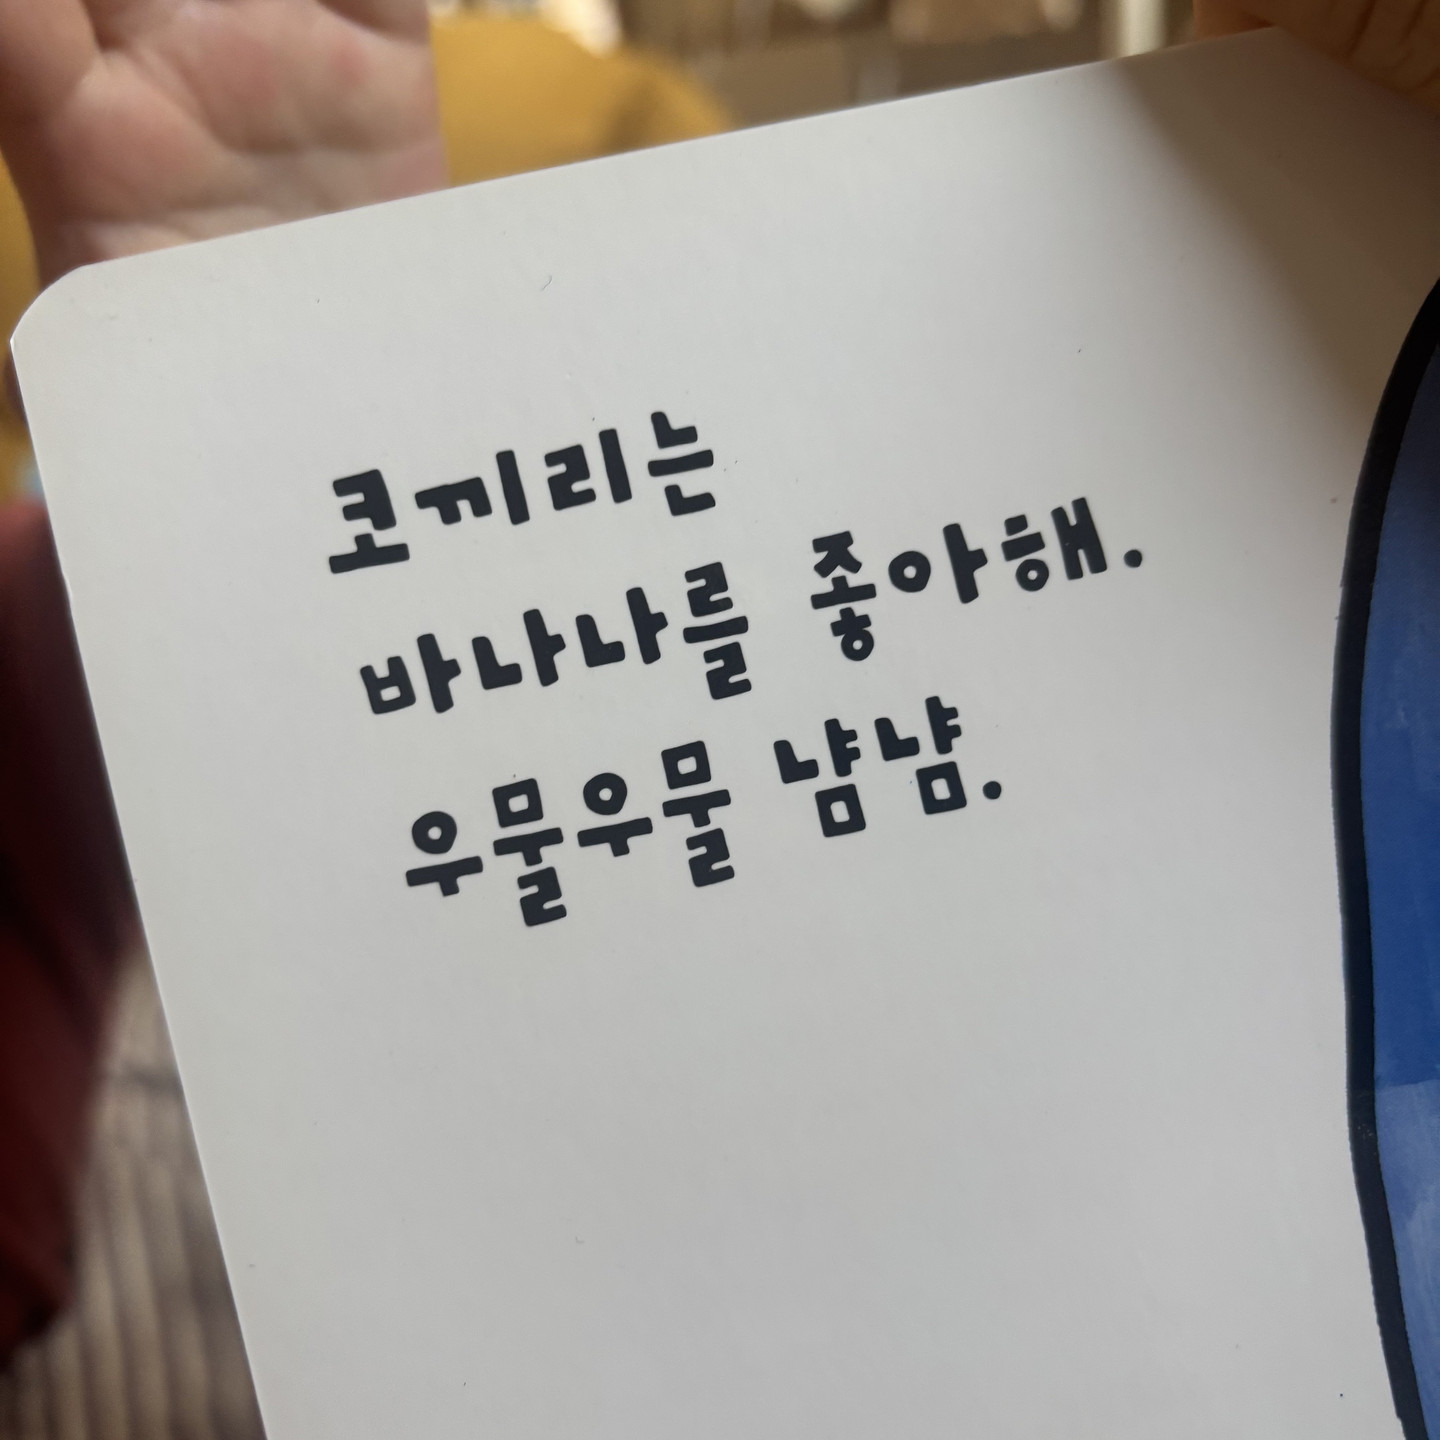 코끼리는
바나나를 좋아해.
우물우물 냠냠.